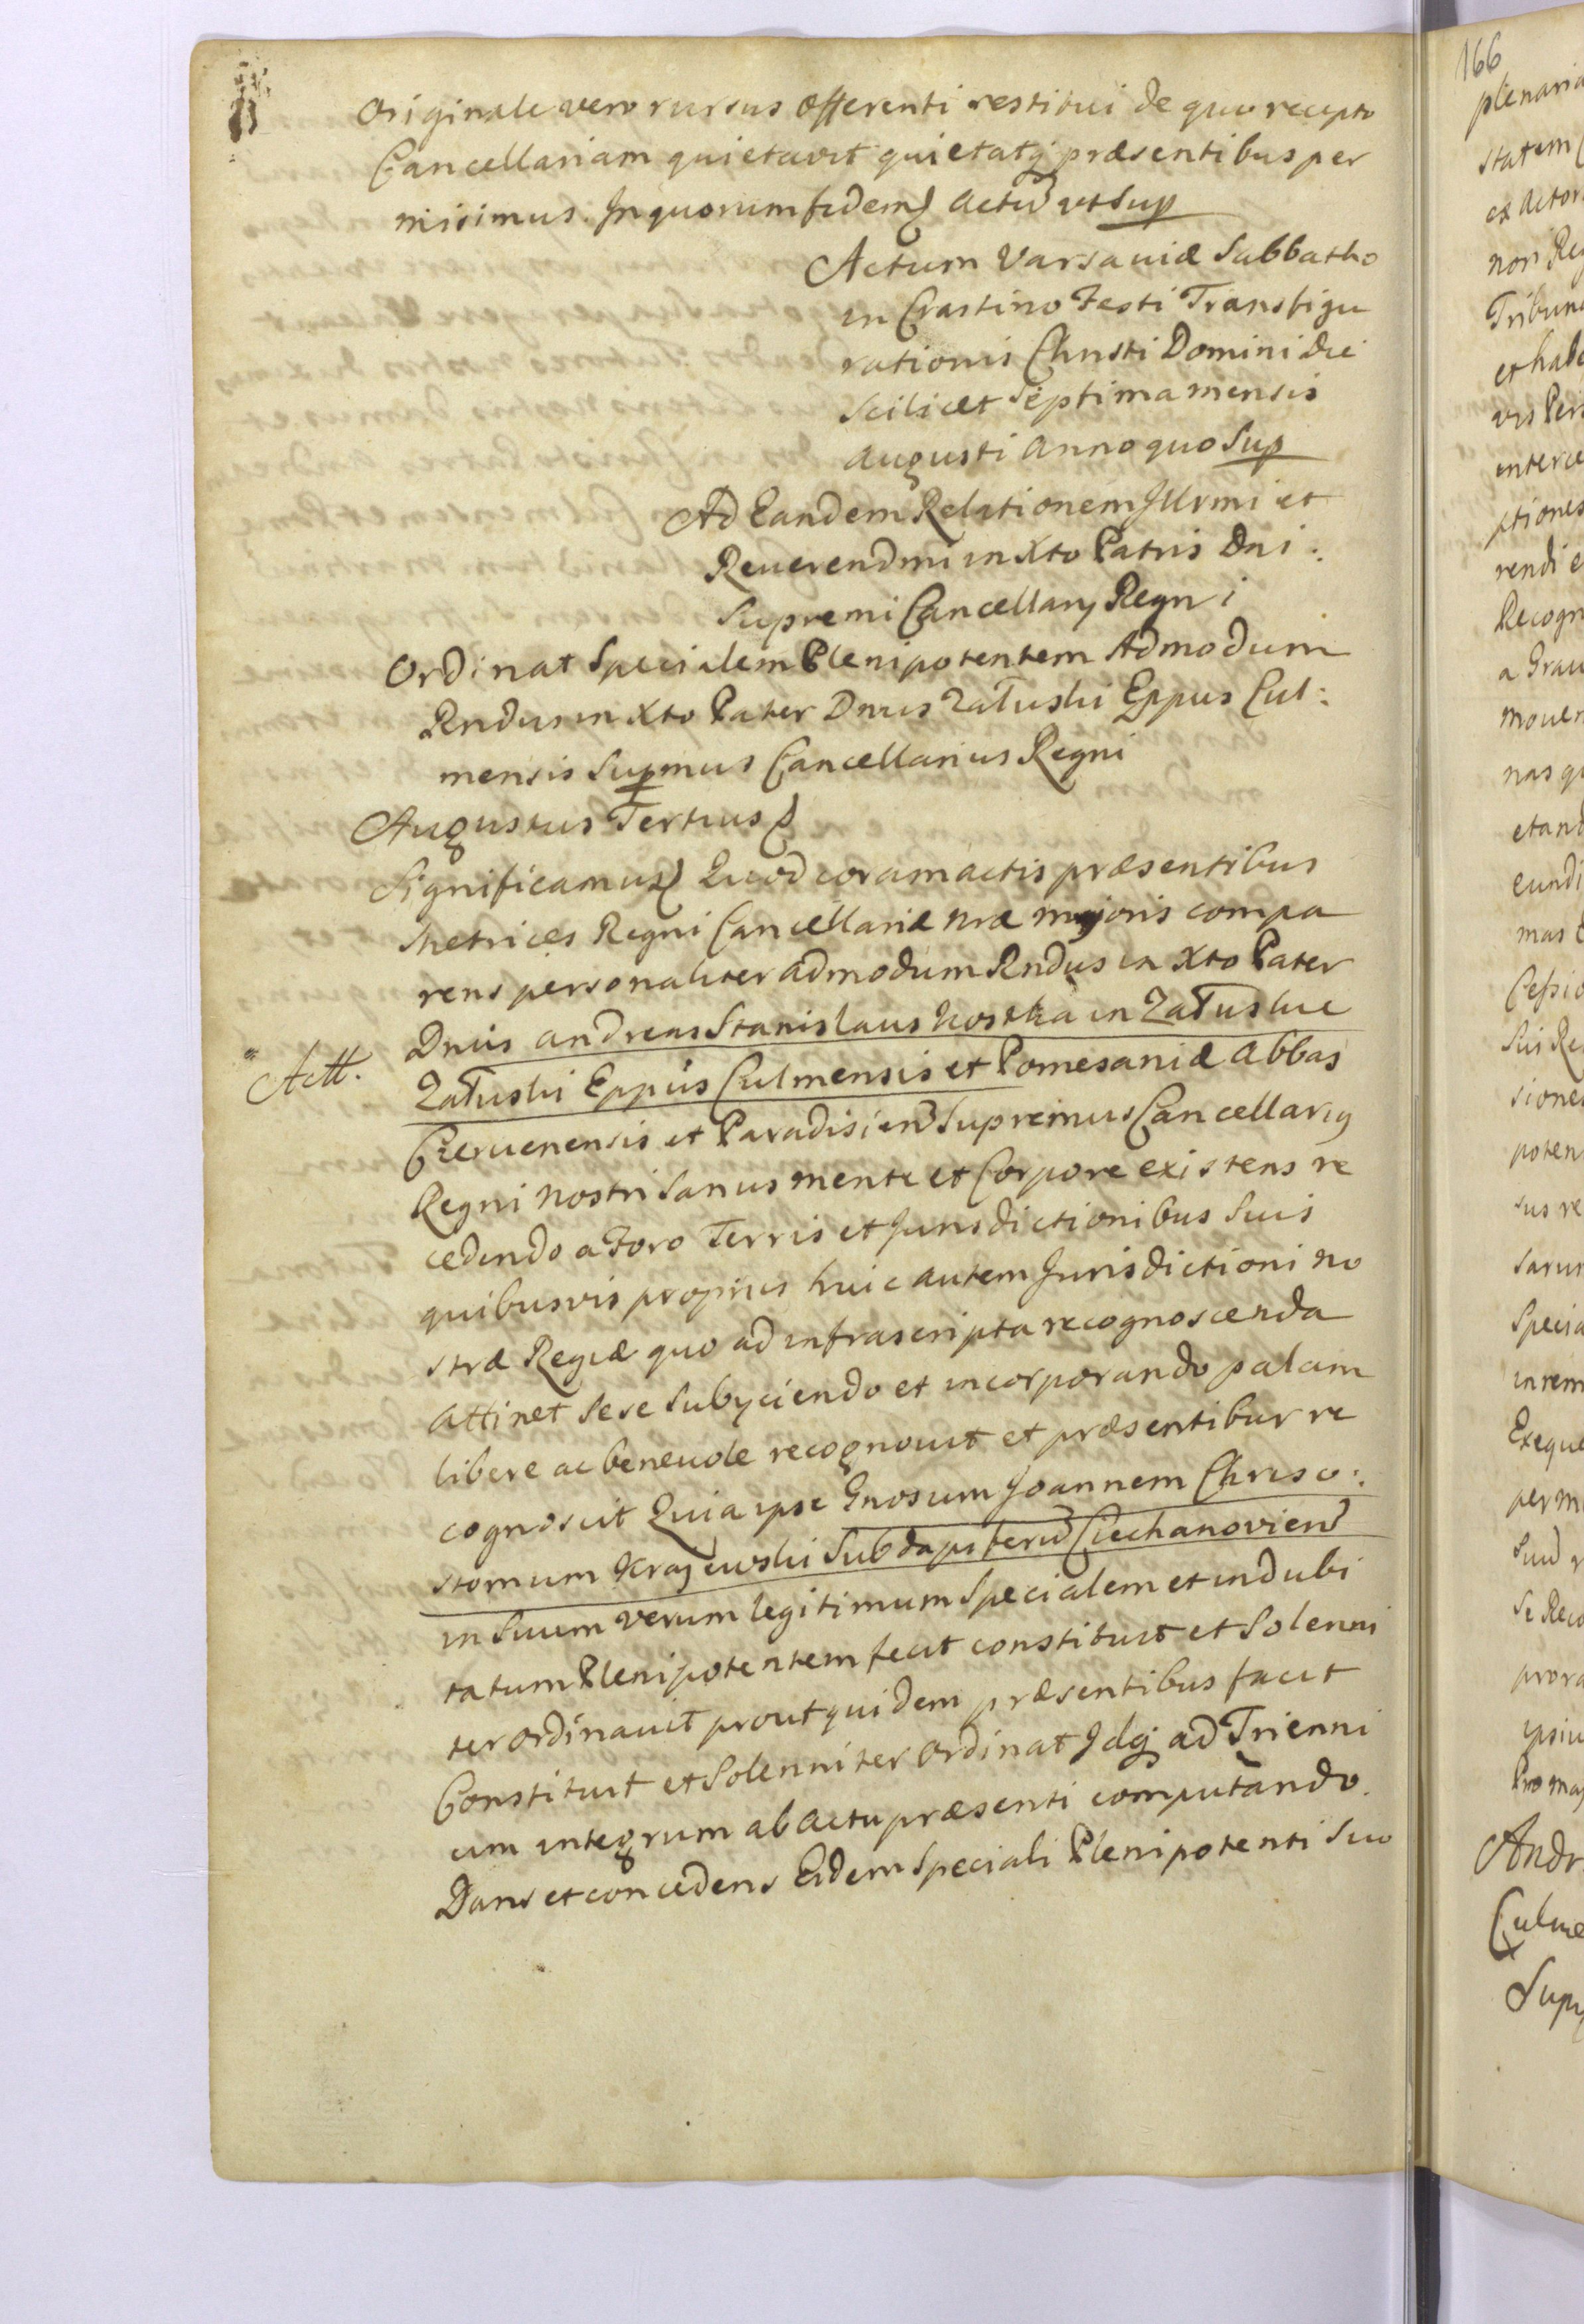 Originale vero rursus offerenti restitui de quo recepto
Cancellariam quietavit quietatq præsentibus per
misimus. In quorum fidem Actu ut Sup
Actum Varsaviæ Sabbatho
in Crastino Festi Transfigu
rationis Christi Domini Die
Scilicet Septima mensis
Augusti Anno quo Sup
Ad Eandem Relationem Illrmi et
Reverendmi in Xto Patris Dni:
Supremi Cancellarij Regni
Ordinat Specialem Plenipotentem Admodum
Rndus in Xto Pater Dnus Załuski Eppus Cul:
mensis Supmus Cancellarius Regni
Augustus Tertius
Significamus Quod coram actis præsentibus
Metrices Regni Cancellariæ nræ majoris compa
rens personaliter admodum Rndus in Xto Pater
Dnus Andreas Stanislaus Kostka in Załuskie
Actt.
Załuski Eppus Culmensis et Pomesaniæ Abbas
Czervenensis et Paradisien Supremus Cancellari9
Regni nostri Sanus mente et Corpore existens re
cedendo a Foro Terris et Jurisdictionibus Suis
quibusvis propriis huic autem Jurisdictioni no
stræ Regiæ quo ad infrascripta recognoscenda
attinet sese Subyciendo et incorporando palam
libere ac benevole recognovit et præsentibus re
cognoscit Quia ipse Gnosum Joannem Chriso:
stomum Krajewski Subdapiferu Ciechanovien
in Suum verum legitimum Specialem et indubi
tatum Plenipotentem fecit constituit et Solenni
ter ordinavit prout quidem præsentibus facit
Constituit et Solenniter ordinat Idq ad Trienni
um integrum ab Actu præsenti computando.
Dans et concedens Eidem Speciali Plenipotenti Suo
166
plenaria
statem
ex actor
nori Reg
Tribuna
et hab
vis Per
interce
ptiones
rendi e
Recogn
a Grav
moven
nas qu
etand
eundi
mas
Cessio
Suis Re
siones
poten
sus re
Sarum
Specia
in rem
Exeque
perm
Suu
se Reco
prora
ipsiu
Pro maj
Andr
Culme
Supr